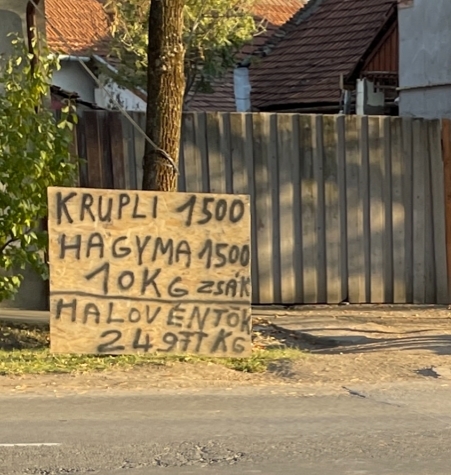 KRUPLI 1500
HAGYMA 1500
10KG ZSÁK
HALOVÉNTÖK
249FT KG